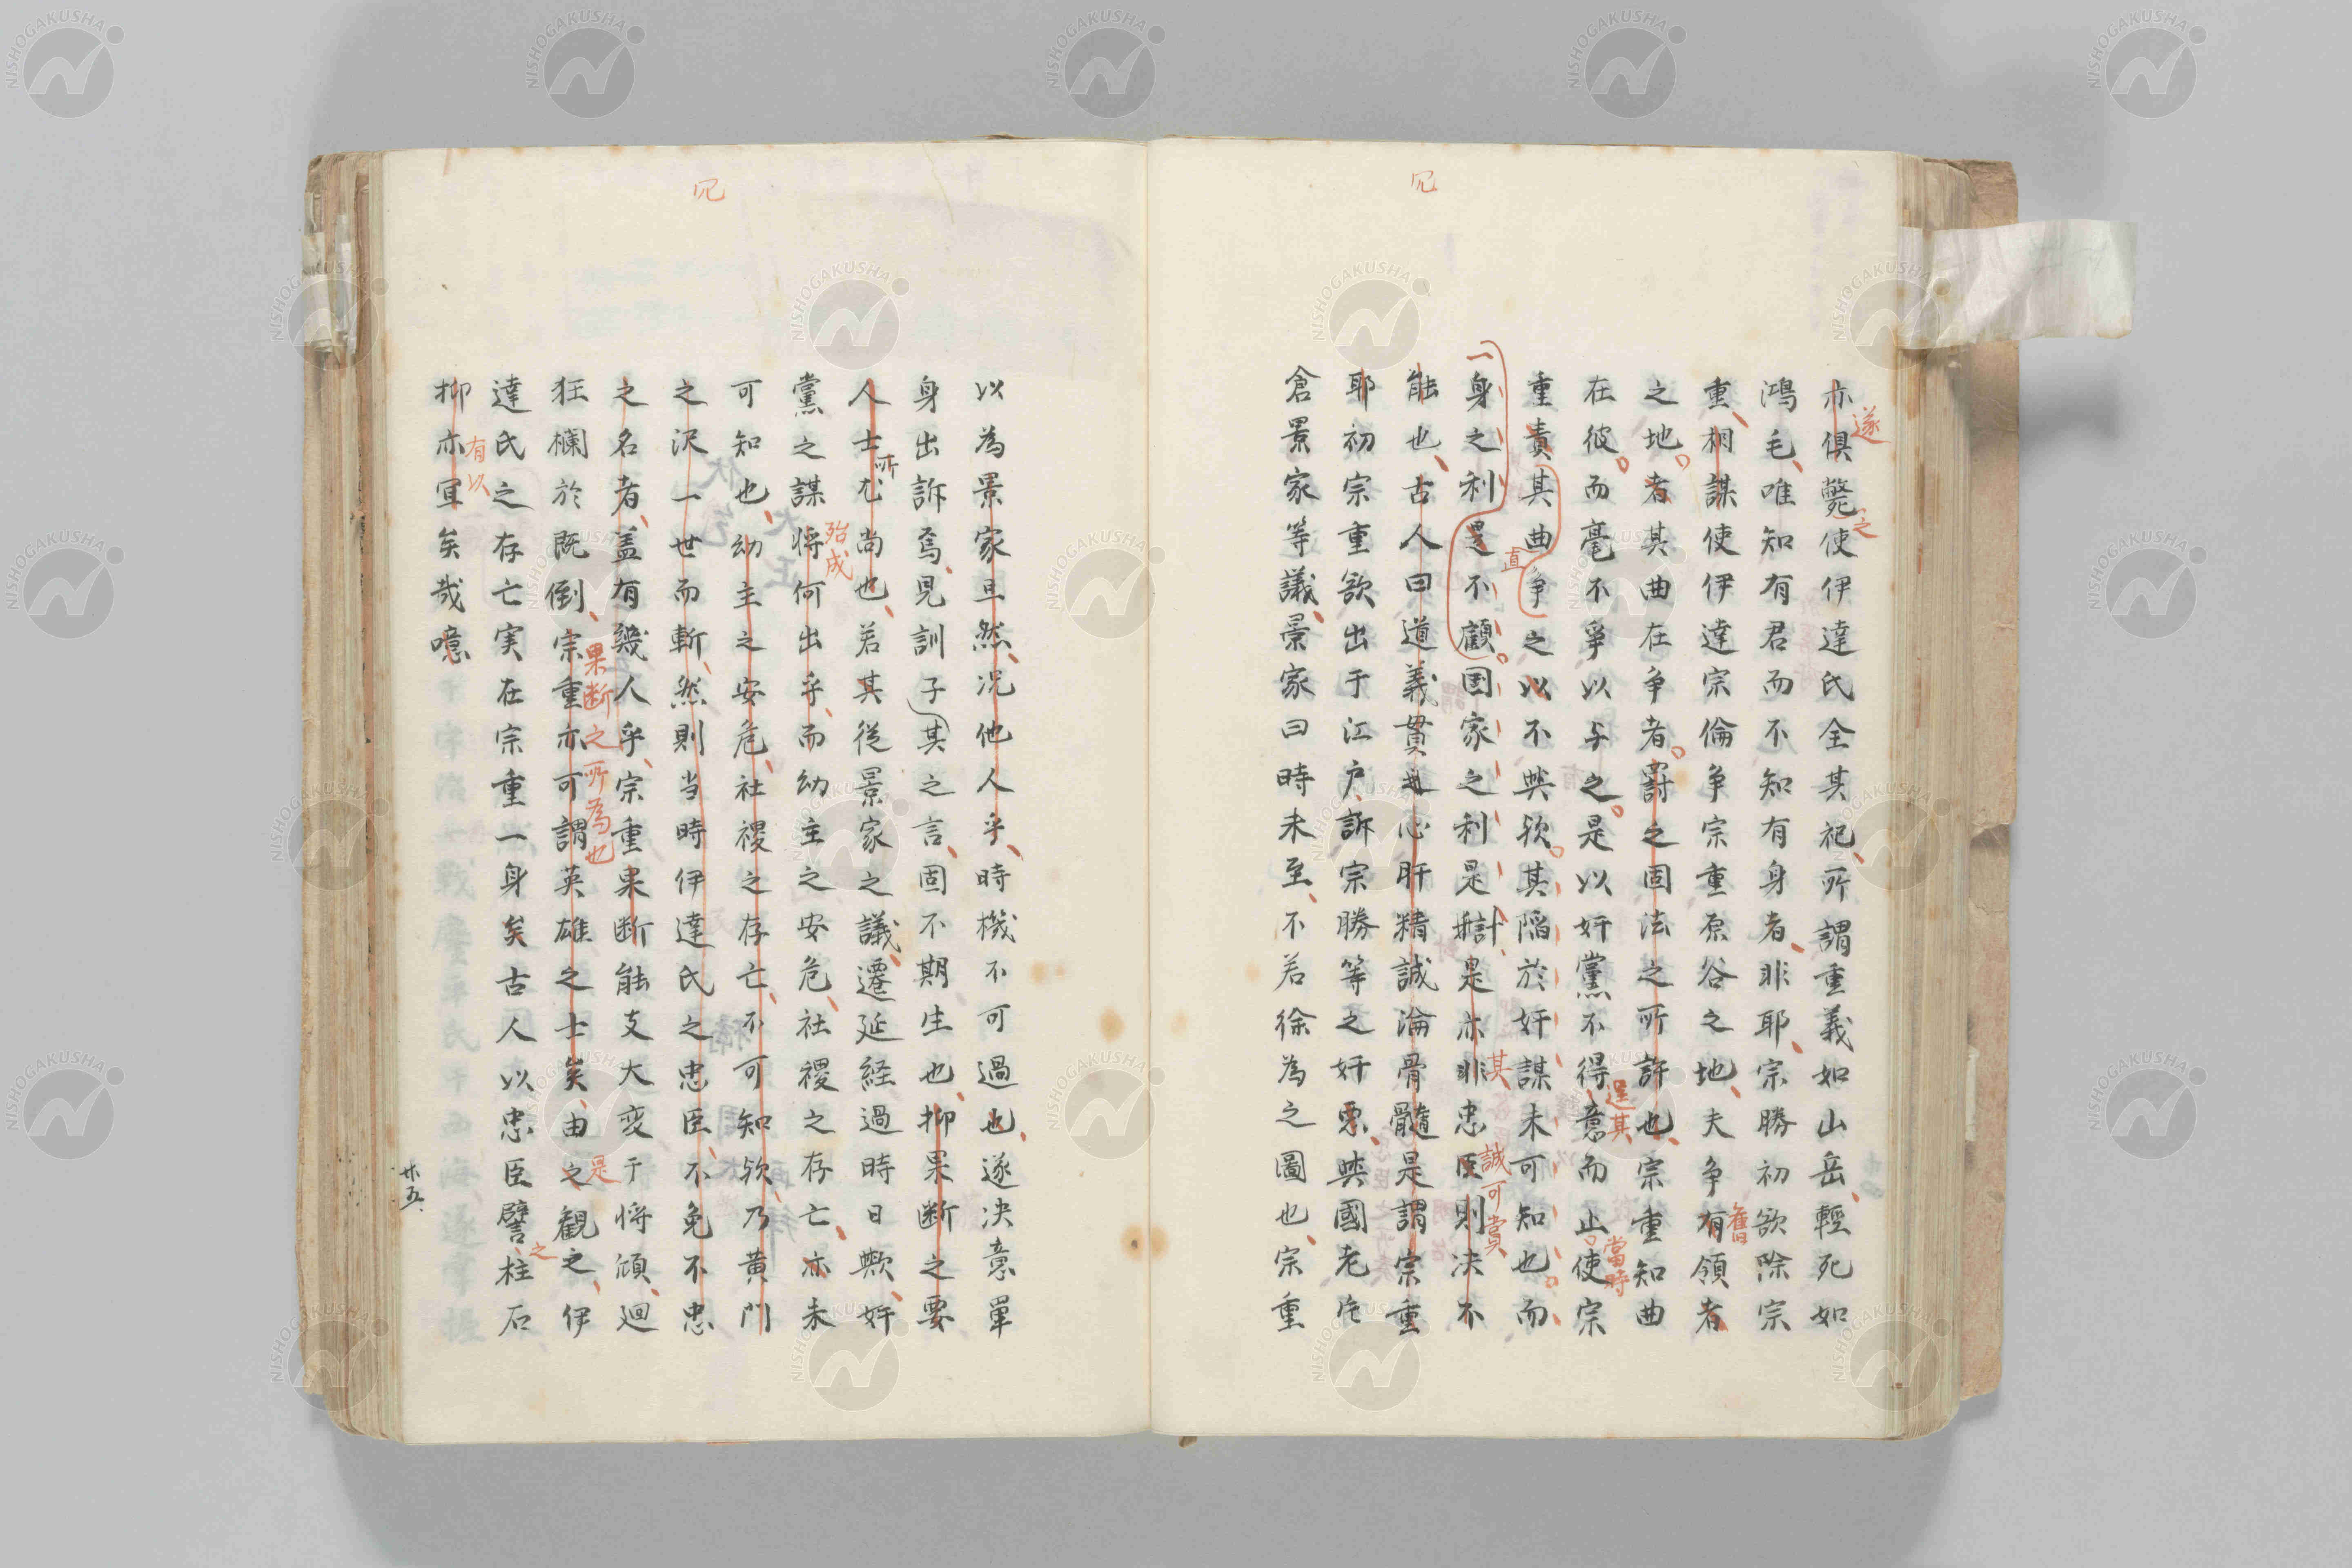 亦俱斃使伊達氏全其祀所謂重義如山岳輕死如
遂
之
鴻毛唯知有君而不知有身者非耶宗勝初欲除宗
重相謀使伊達宗倫争宗重原谷之地夫争有領者
舊
之地者其曲在争者罸之固法之所許也宗重知曲
在彼而毫不爭以与之是以奸黨不得意而止使宗
逞其
當時
重責其曲争之以不與欤其陥於奸謀未可知也而
直
一身之利是不顧国家之利是計是亦非忠臣則决不
其
誠可賞
能也古人曰道義貫心肝精誠淪骨髓是謂宗重
耶初宗重欲出于江户訴宗勝等之奸惡與國老
倉景家等議景家曰時未至不若徐為之圖也宗重
以為景家且然况他人乎時機不可過也遂决意單
身出訴焉見訓子其之言固不期生也抑果断之要
人士所尚也若其從景家之議遷延経過時日歟奸
黨之謀将何出乎而幼主之安危社禝之存亡亦未
殆成
可知也幼主之安危社禝之存亡不可知欤乃黄門
之沢一世而斬然則当時伊達氏之忠臣不免不忠
之名者盖有幾人乎宗重果断能支大変于将傾廻
狂欄於既倒宗重亦可謂英雄之士矣由之観之伊
果断之所為也
是
達氏之存亡実在宗重一身矣古人以忠臣譬柱石
之
抑亦宜矣哉噫
有以
廿五
NISHOGAKUSHA